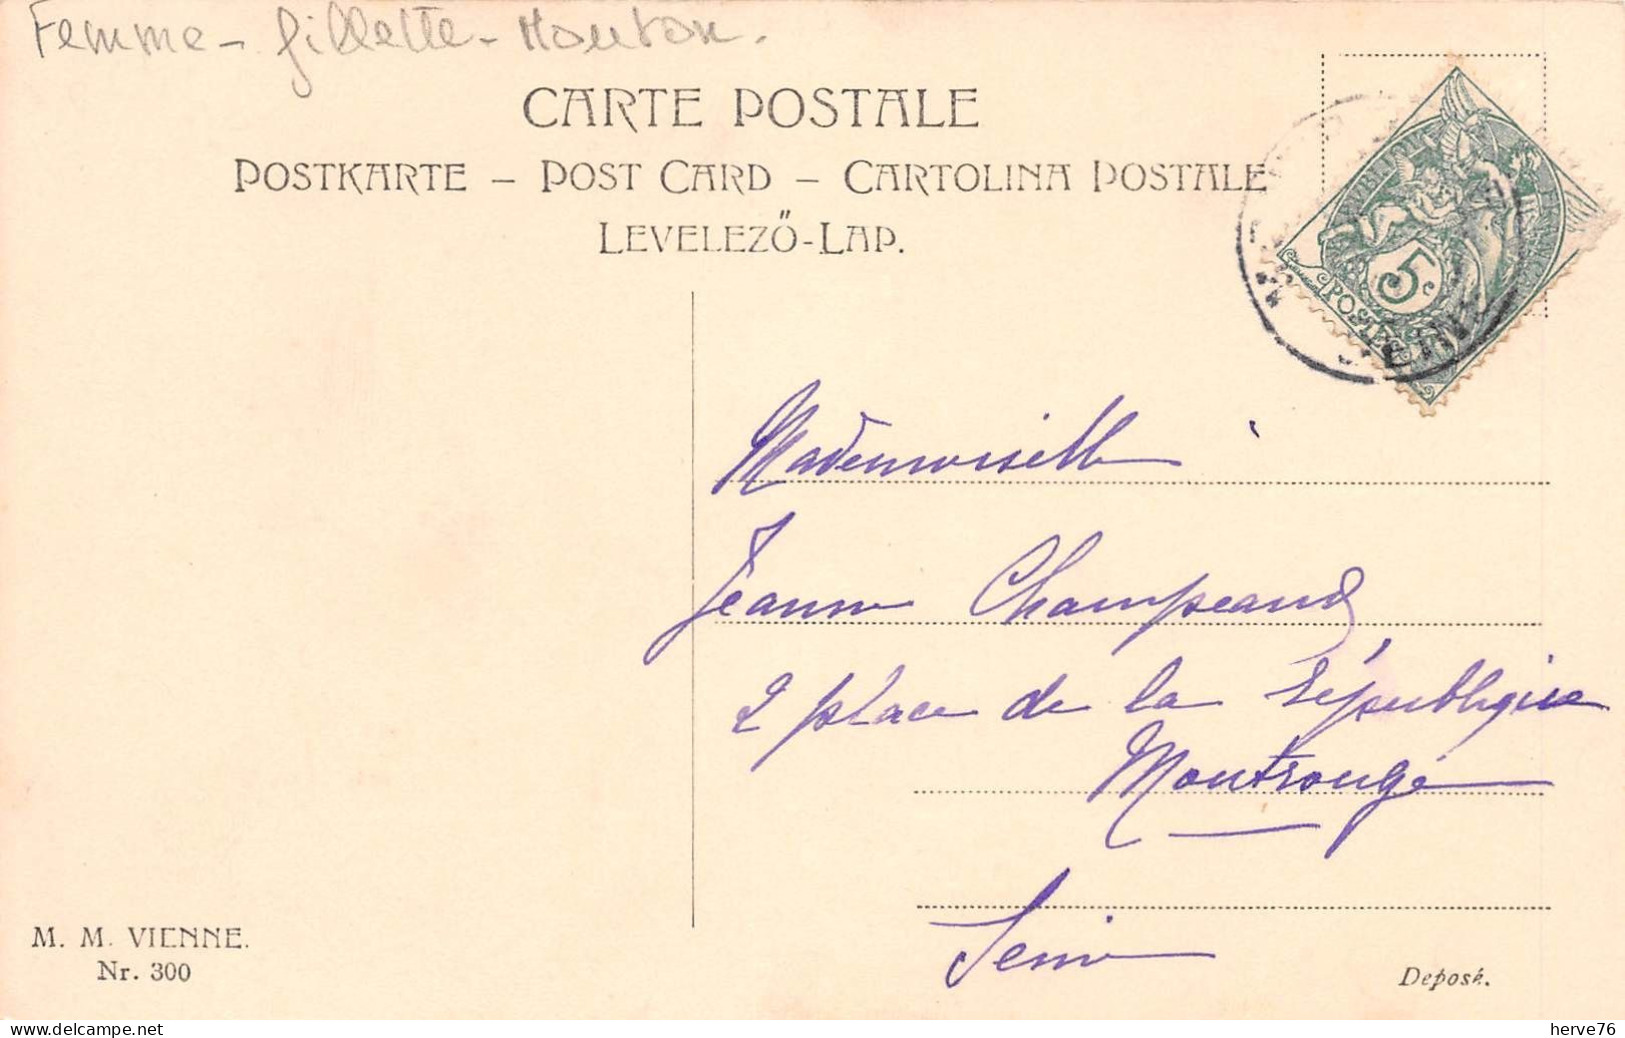 Femme - fillette - Mouton.
CARTE POSTALE
POSTKARTE – POST CARD – CARTOLINA POSTALE
LEVELEZŐ-LAP.
5c
POSTES
SEINE
Mademoiselle
Jeanne Champeaud
2 place de la République
Montrouge
Seine
M. M. VIENNE.
Nr. 300
Deposé.
website-stock: delcampe.net
herve76